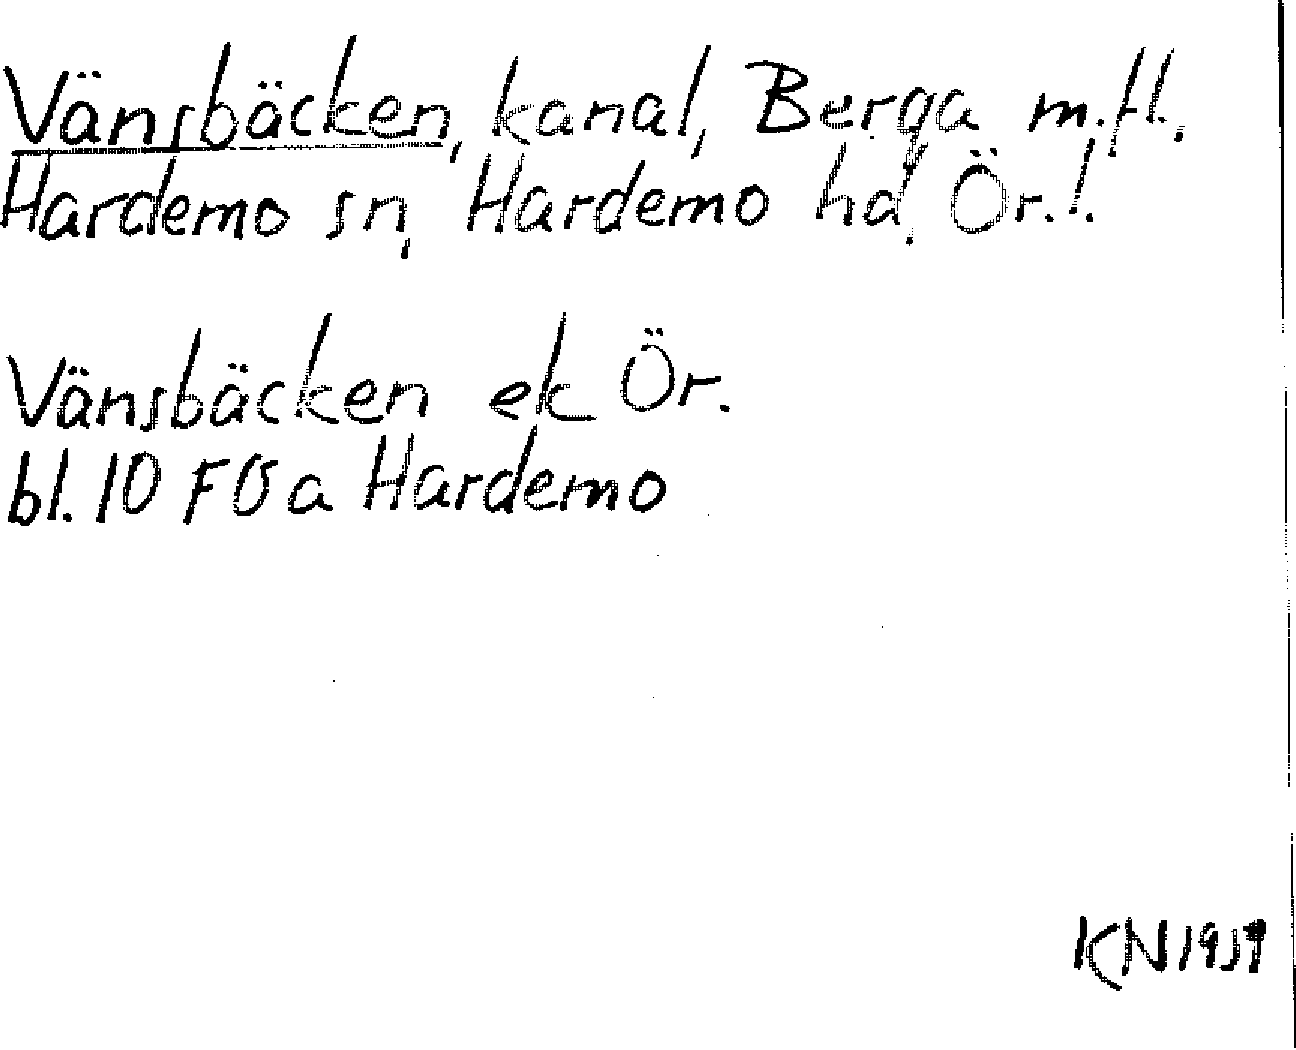 Vänsbäcken, kanal, Berga m.fl.
Hardemo sn, Hardemo hd, Ör.l.
Vänsbäcken ek Ör.
bl. 10 FÖa Hardemo
KN